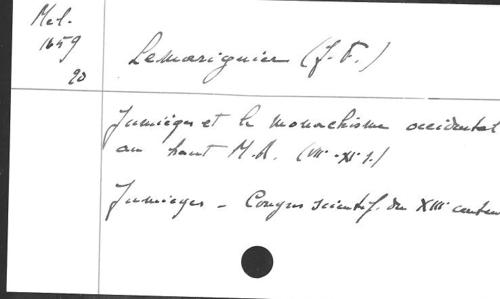 Mel.
1659
90
Lemarignier (J.F.)
Jumièges et le monachisme occidental
au haut M.A. (VII-XI s.)
Jumièges - Congrès scientif. du XIII centen